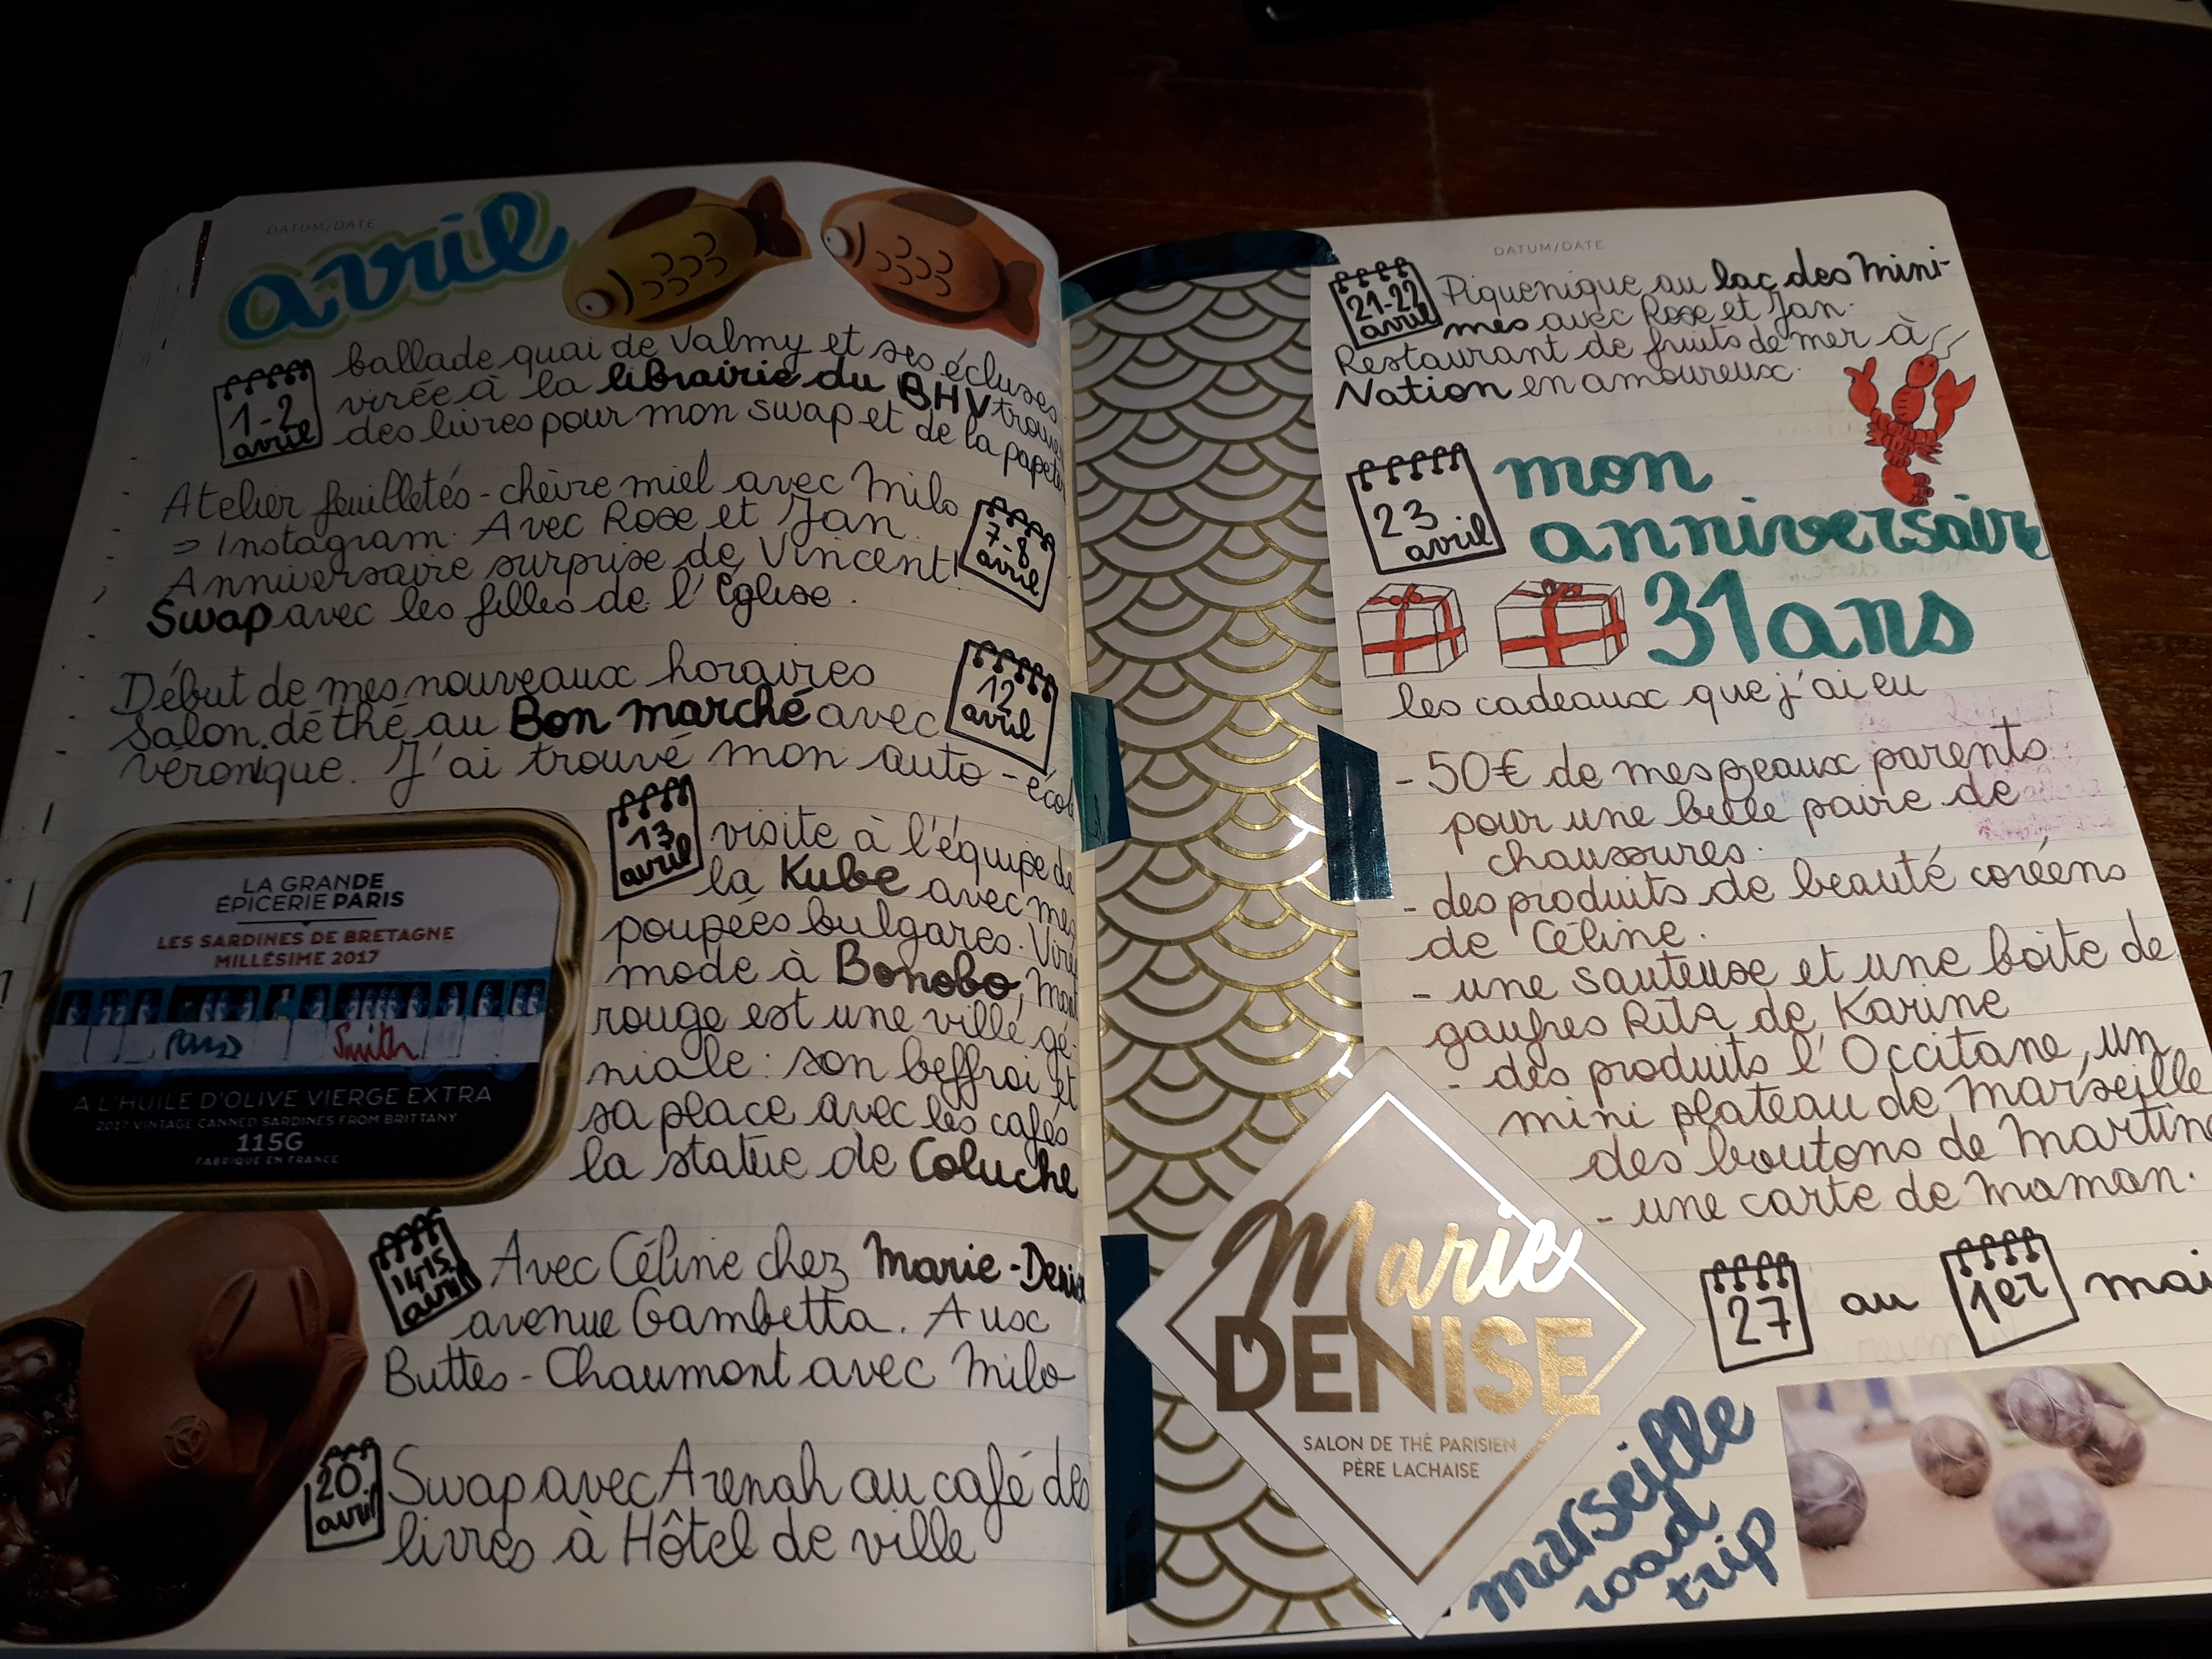 DATUM/DATE
avril
1-2
avril
ballade quai de Valmy et ses écluses
virée à la librairie du BHV
des livres pour mon swap et de la
Atelier feuilletés - chèvre miel avec Milo
=> Instagram. Avec Rose et Jan.
7-8
avril
Anniversaire surprise de Vincent!
Swap avec les filles de l'Église.
Début de mes nouveaux horaires
12
avril
Salon de thé au Bon marché avec
Véronique. J'ai trouvé mon auto-
13
avril
visite à l'équipe de
la Kube avec mes
poupées bulgares.
mode à Bonobo,
rouge est une ville gé-
niale: son beffroi et
sa place avec les cafés
la statue de Coluche
LA GRANDE
ÉPICERIE PARIS
LES SARDINES DE BRETAGNE
MILLÉSIME 2017
Smith
A L'HUILE D'OLIVE VIERGE EXTRA
2017 VINTAGE CANNED SARDINES FROM BRITTANY
115G
FABRIQUÉ EN FRANCE
14-15
avril
Avec Céline chez Marie-
avenue Gambetta. Aux
Buttes-Chaumont avec Milo
20
avril
Swap avec Arenah au café des
livres à Hôtel de ville
DATUM/DATE
21-22
avril
Piquenique au lac des Mini-
mes avec Rose et Jan.
Restaurant de fruits de mer à
Nation en amoureux.
23
avril
mon
anniversaire
31 ans
les cadeaux que j'ai eu
- 50€ de mes beaux parents
pour une belle paire de
chaussures.
- des produits de beauté coréens
de Céline.
- une sauteuse et une boite de
gaufres Rita de Karine
- des produits l'Occitane, un
mini plateau de Marseille
des boutons de
- une carte de Maman.
27
au
1er
Marie
DENISE
SALON DE THÉ PARISIEN
PÈRE LACHAISE
marseille
road
trip